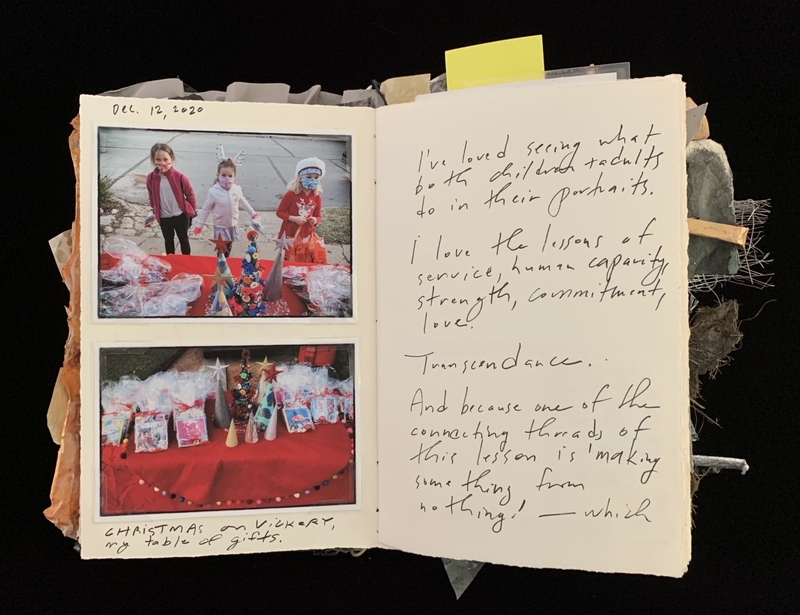 Dec. 12, 2020
CHRISTMAS on VICKERY,
my table of gifts.
I've loved seeing what
both children + adults
do in their portraits.
I love the lessons of
service, human capacity,
strength, commitment,
love.
Transcendance.
And because one of the
connecting threads of
this lesson is 'making
something from
nothing' — which